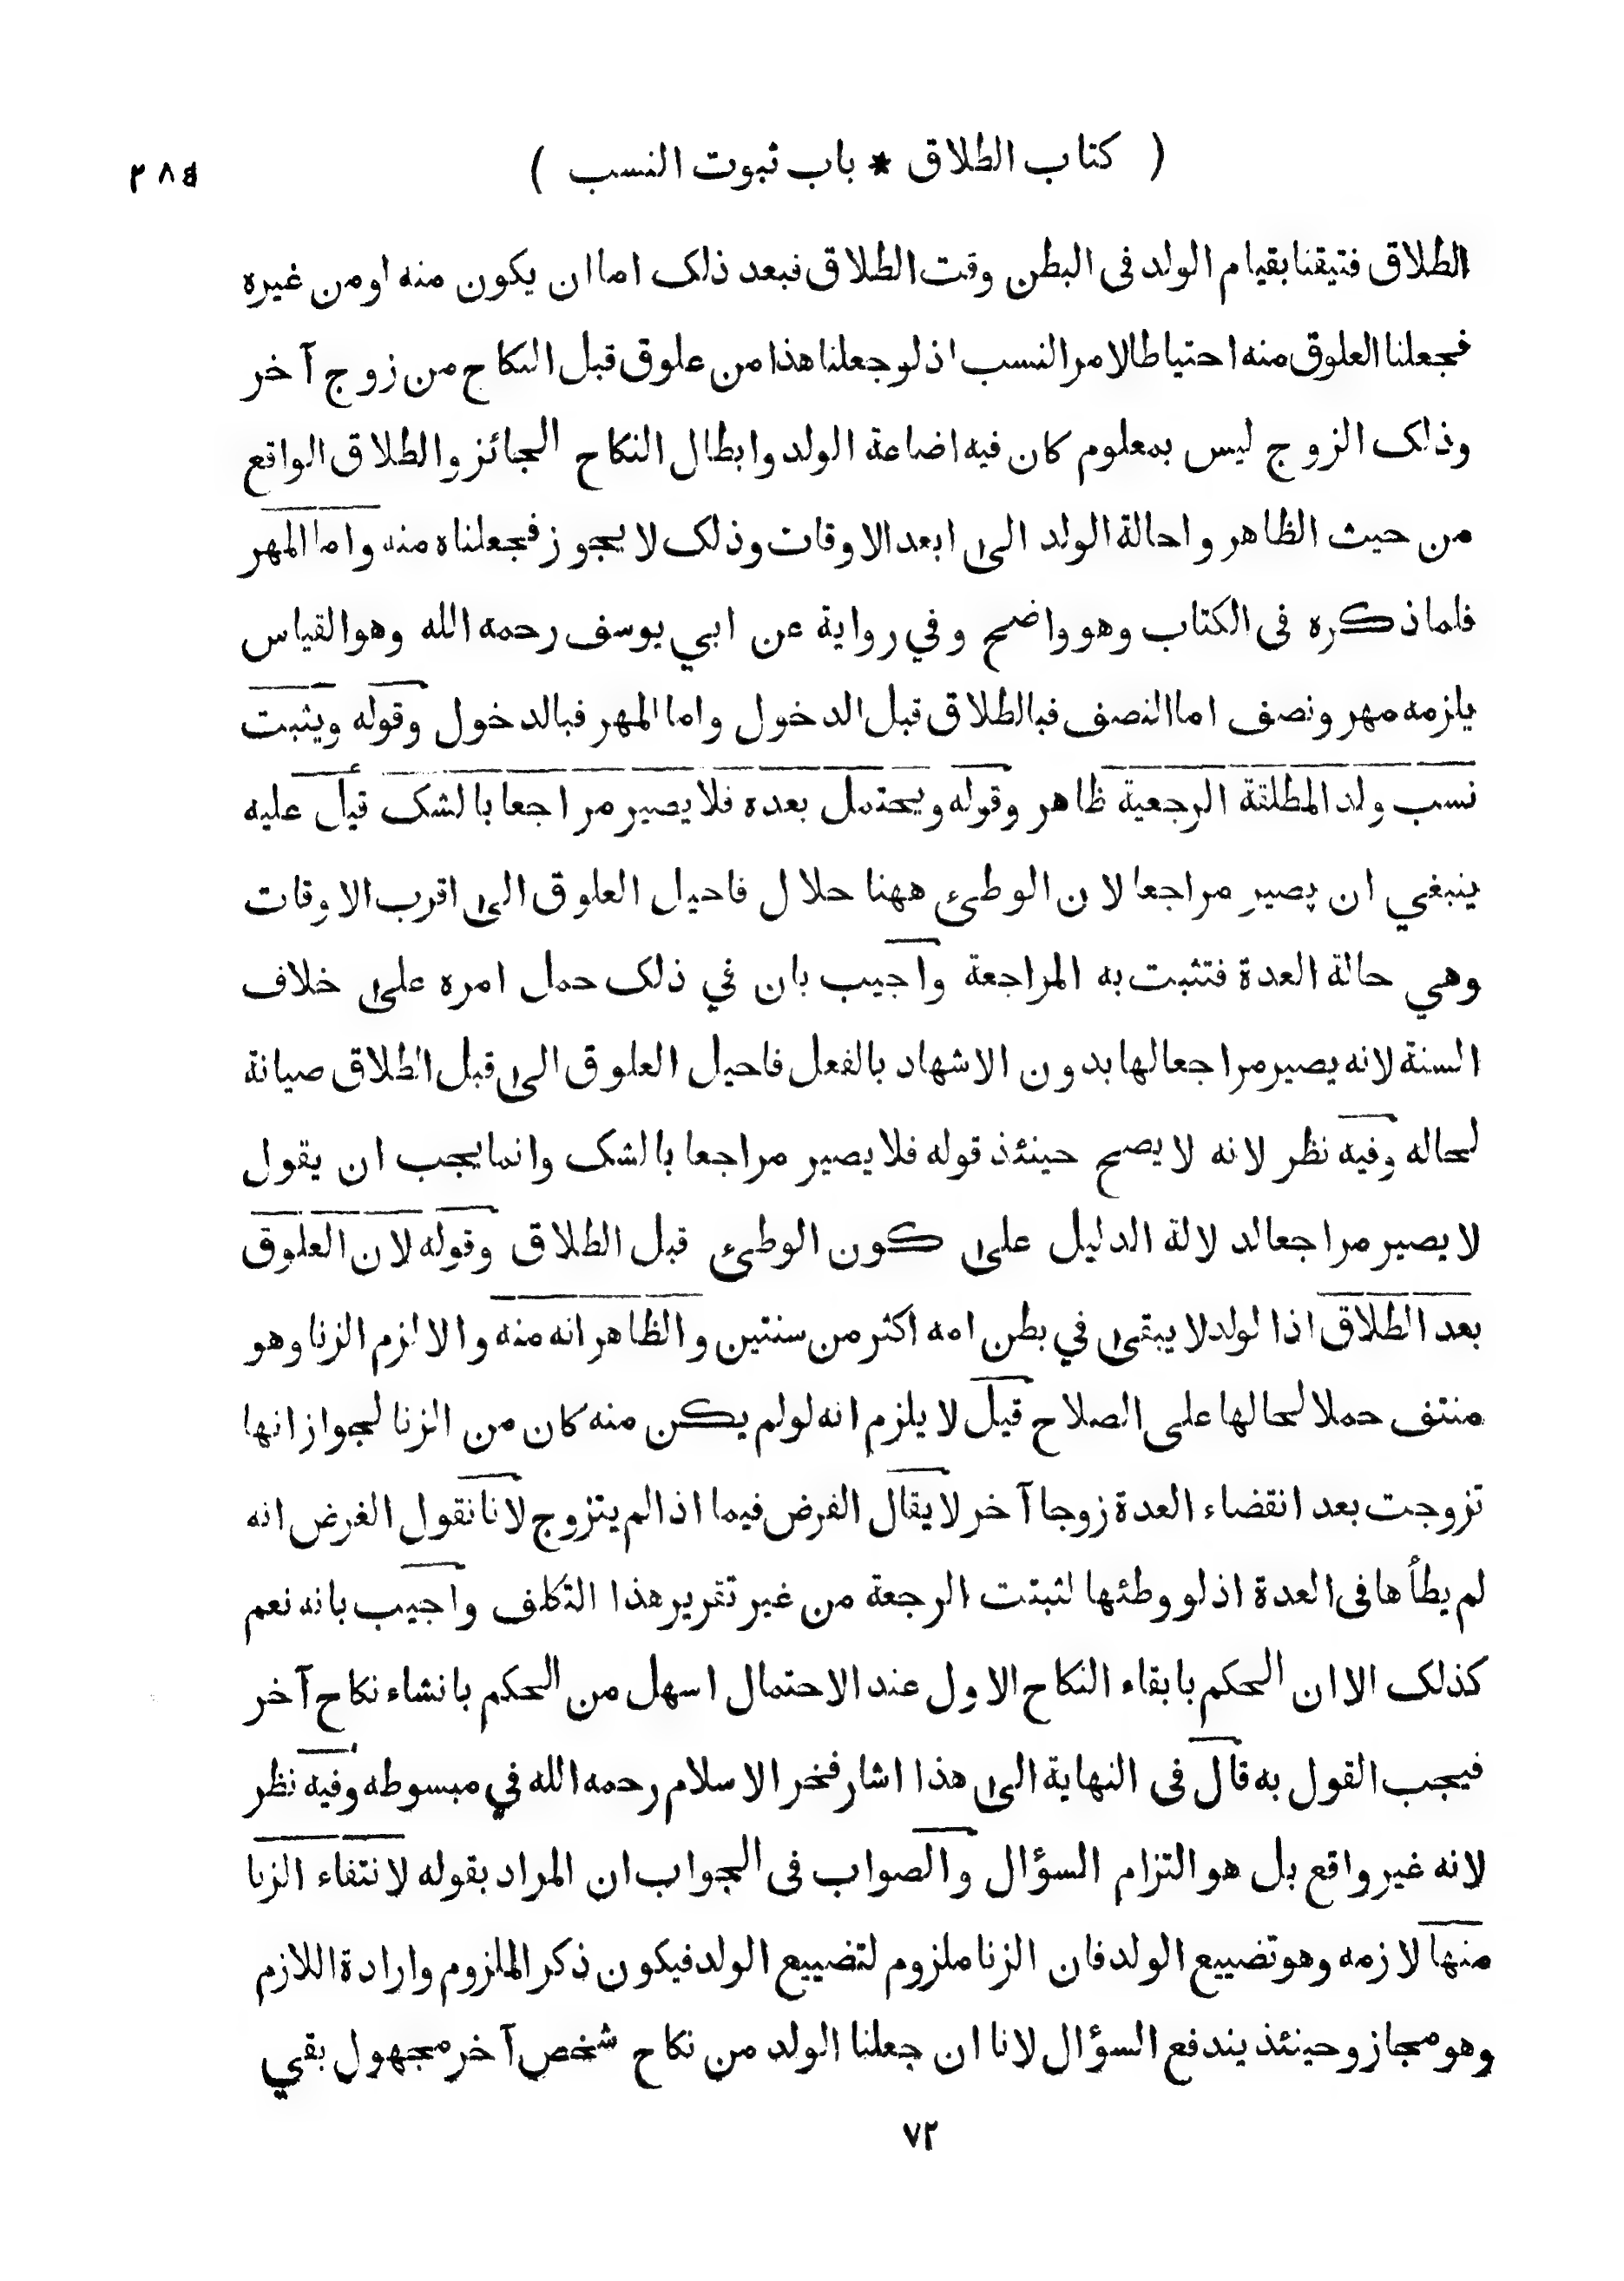 ( كتاب الطلاق * باب ثبوت النسب )
٢٨٥
الطلاق فتيقنا بقيام الولد فى البطن وقت الطلاق فبعد ذلك اما ان يكون منه او من غيره
فجعلنا العلوق منه احتياطا لامر النسب اذ لو جعلنا هذا من علوق قبل النكاح من زوج آخر
وذلك الزوج ليس بمعلوم كان فيه اضاعة الولد وابطال النكاح الجائز والطلاق الواقع
من حيث الظاهر واحالة الولد الى ابعد الاوقات وذلك لا يجوز فجعلناه منه واما المهر
فلما ذكره فى الكتاب وهو واضح وفي رواية عن ابي يوسف رحمه الله وهو القياس
يلزمه مهر ونصف اما النصف فبالطلاق قبل الدخول واما المهر فبالدخول وقوله ويثبت
نسب ولد المطلقة الرجعية ظاهر وقوله ويحتمل بعده فلا يصير مراجعا بالشك قيل عليه
ينبغي ان يصير مراجعا لان الوطئ ههنا حلال فاحيل العلوق الى اقرب الاوقات
وهي حالة العدة فتثبت به المراجعة واجيب بان في ذلك حمل امره على خلاف
السنة لانه يصير مراجعا لها بدون الاشهاد بالفعل فاحيل العلوق الى قبل الطلاق صيانة
لحاله وفيه نظر لانه لا يصح حينئذ قوله فلا يصير مراجعا بالشك وانما يجب ان يقول
لا يصير مراجعا لدلالة الدليل على كون الوطئ قبل الطلاق وقوله لان العلوق
بعد الطلاق اذا لولد لا يبقى في بطن امه اكثر من سنتين والظاهر انه منه والا لزم الزنا وهو
منتف حملا لحالها على الصلاح قيل لا يلزم انه لو لم يكن منه كان من الزنا لجواز انها
تزوجت بعد انقضاء العدة زوجا آخر لا يقال الفرض فيما اذا لم يتزوج لانا نقول الغرض انه
لم يطأها فى العدة اذ لو وطئها لثبتت الرجعة من غير تقرير هذا التكلف واجيب بانه نعم
كذلك الا ان الحكم بابقاء النكاح الاول عند الاحتمال اسهل من الحكم بانشاء نكاح آخر
فيجب القول به قال فى النهاية الى هذا اشار فخر الاسلام رحمه الله في مبسوطه وفيه نظر
لانه غير واقع بل هو التزام السؤال والصواب فى الجواب ان المراد بقوله لانتفاء الزنا
منها لازمه وهو تضييع الولد فان الزنا ملزوم لتضييع الولد فيكون ذكر الملزوم وارادة اللازم
وهو مجاز وحينئذ يندفع السؤال لانا ان جعلنا الولد من نكاح شخص آخر مجهول بقي
٧٢